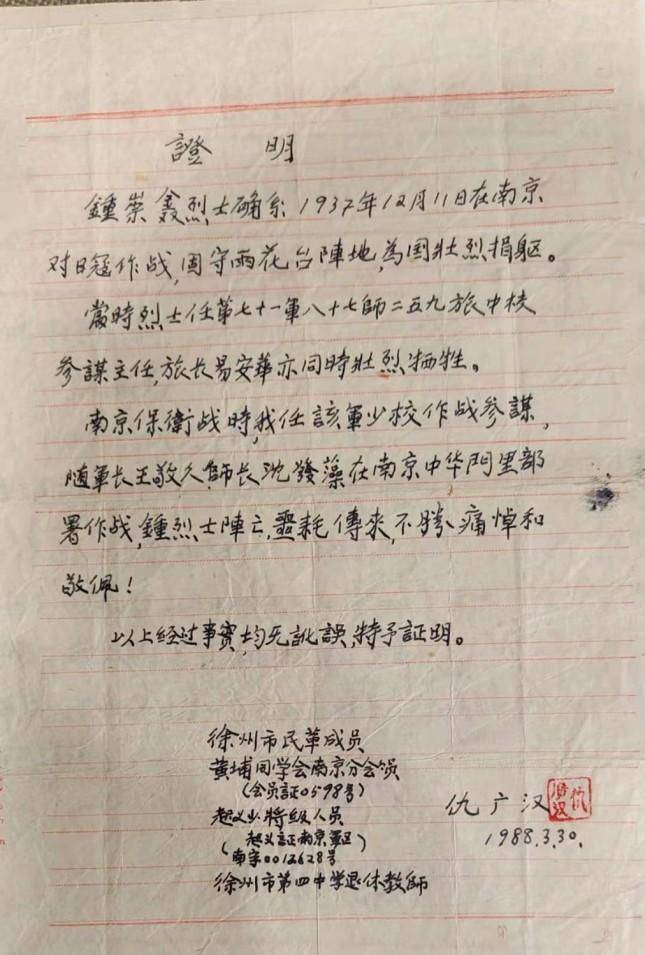 證 明
鍾崇鑫烈士确系1937年12月11日在南京
对日冦作战,固守雨花台陣地,為国壯烈捐躯。
當時烈士任第七十一軍八十七師二五九旅中校
參謀主任,旅长易安華亦同時壯烈牺牲。
南京保衛战時,我任該軍少校作战參謀,
随軍长王敬久,師长沈發藻在南京中华門里部
署作战,鍾烈士陣亡,噩耗傳來,不勝痛悼和
敬佩!
以上经过事實,均无訛誤,特予証明。
徐州市民革成员
黄埔同学会南京分会会员
(会员証0598号)
起义少将级人员
(起义証南京軍区
南字0012628号)
徐州市第四中学退休教師
仇广汉
1988.3.30.